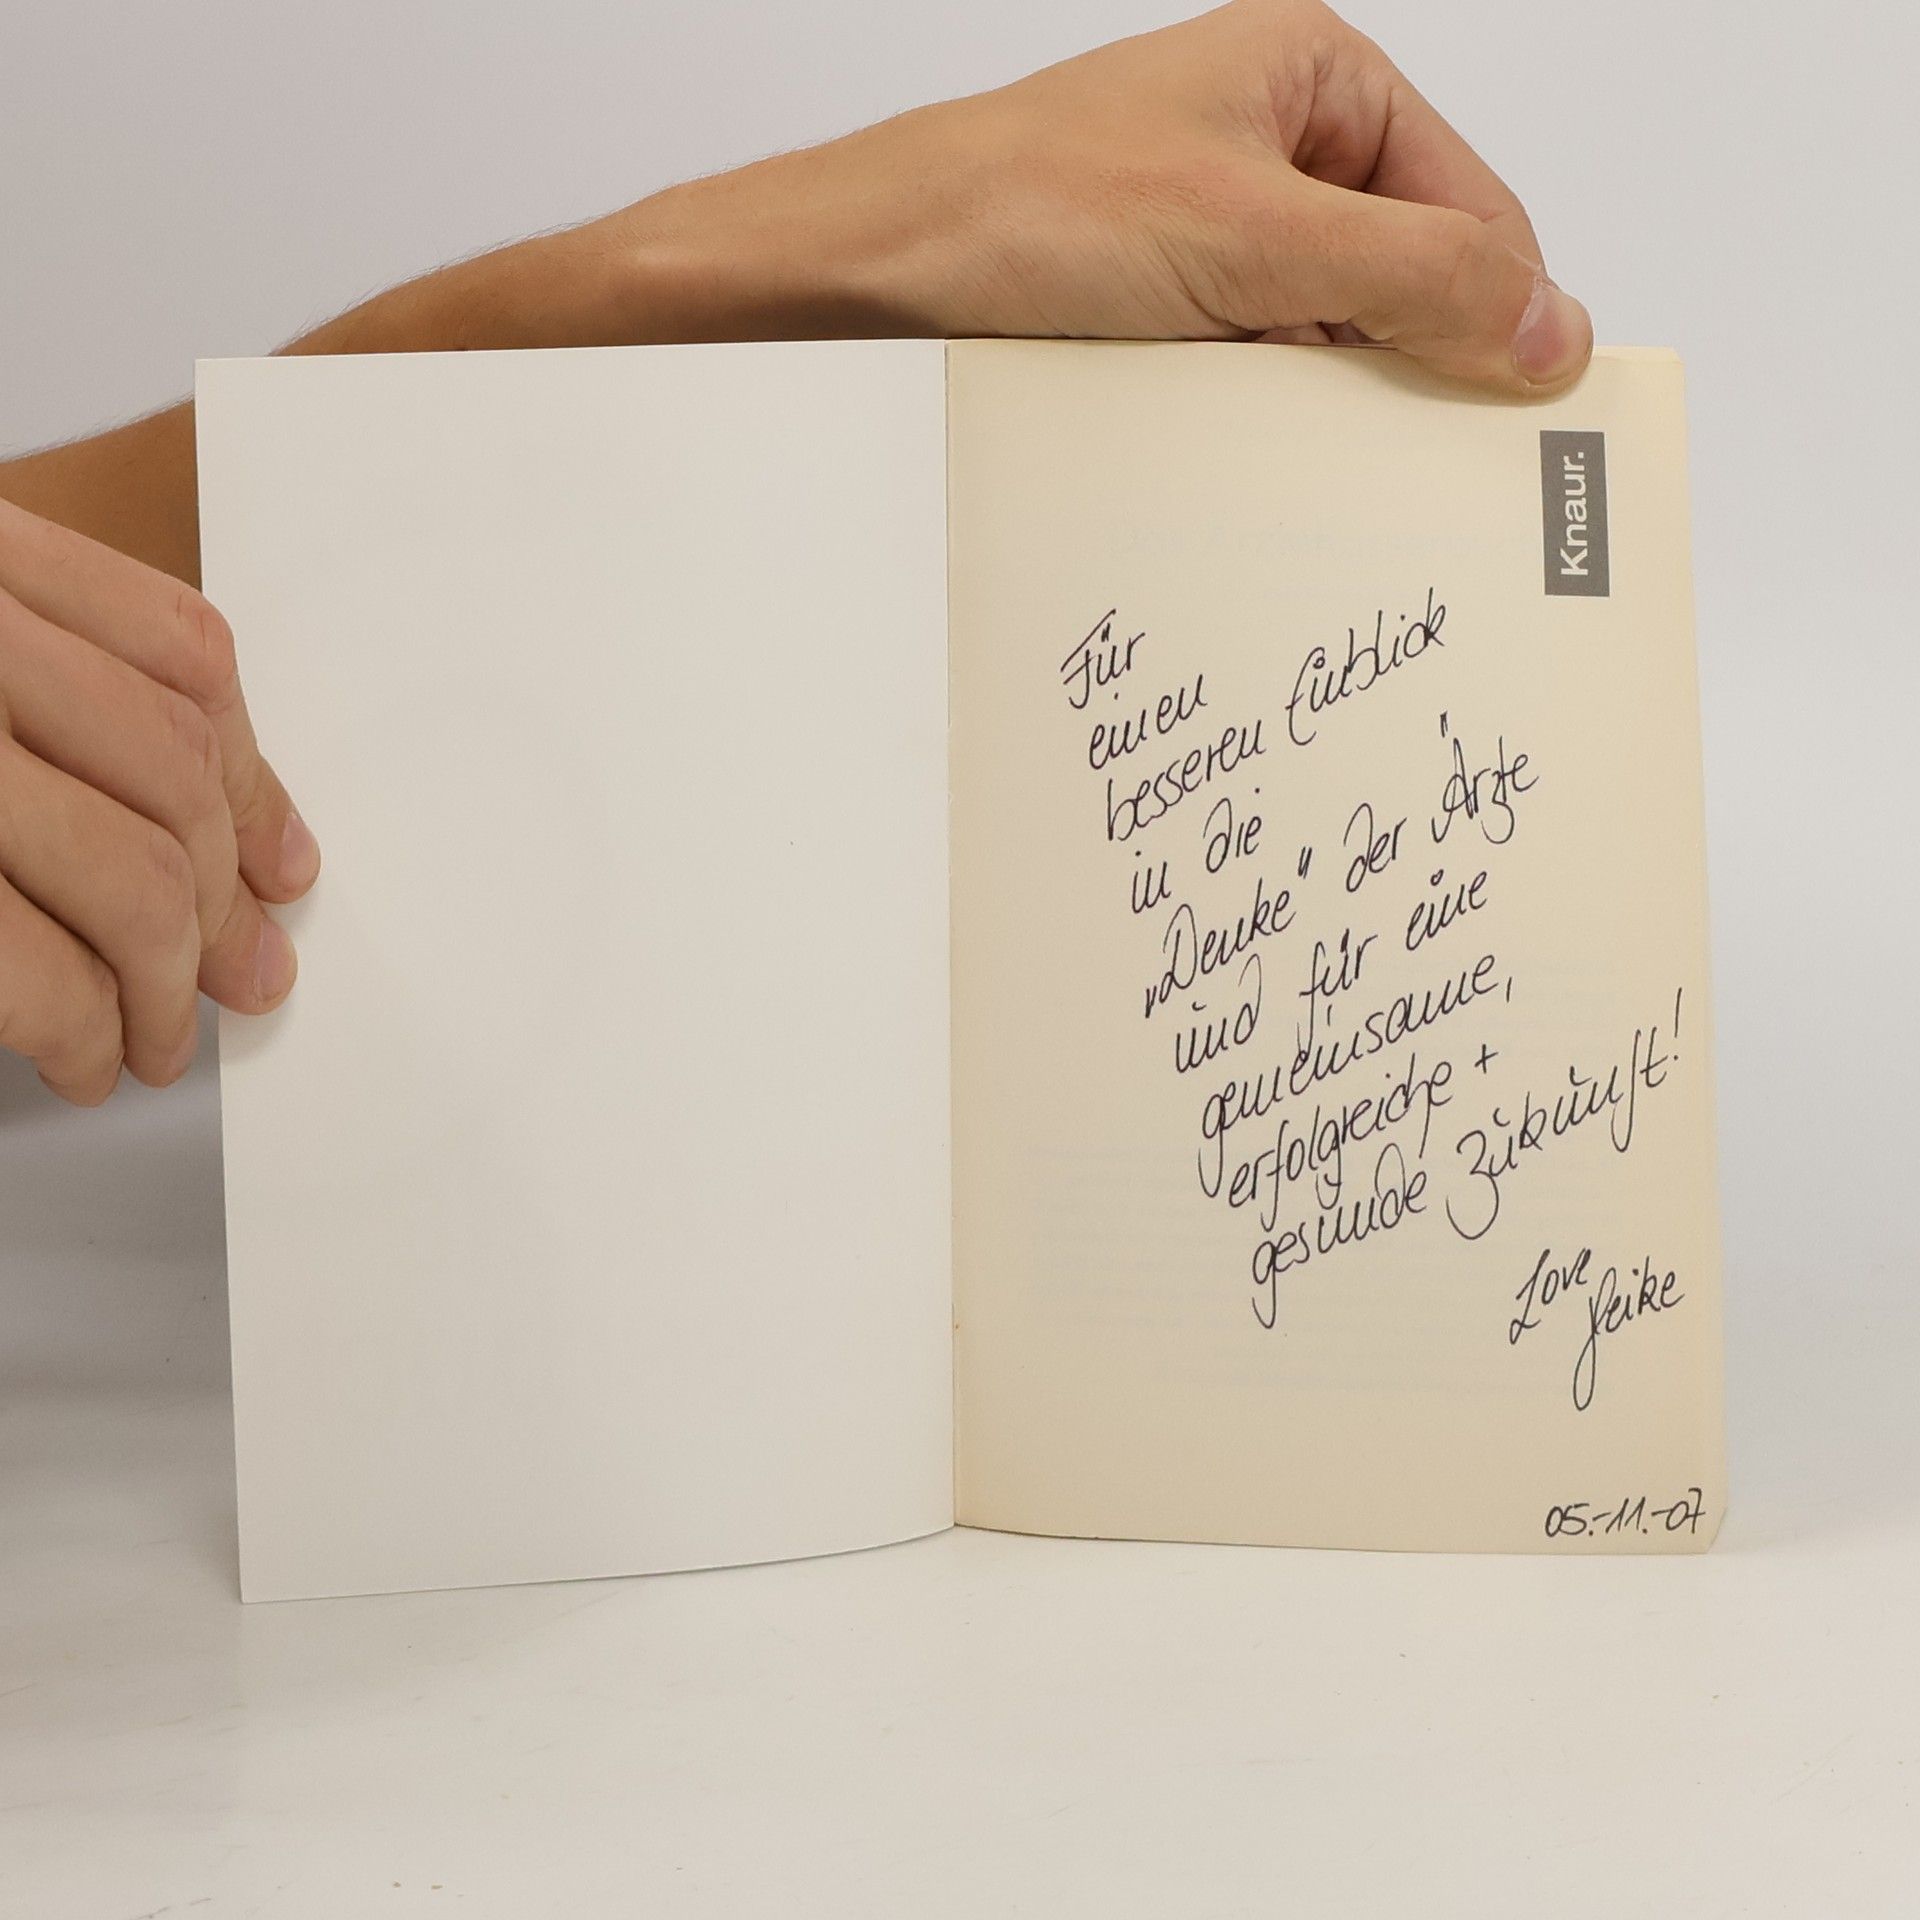 Knaur.
Für
einen
besseren Einblick
in die
„Denke" der Ärzte
und für eine
gemeinsame,
erfolgreiche +
gesunde Zukunft!
Love
Heike
05.-11.-07